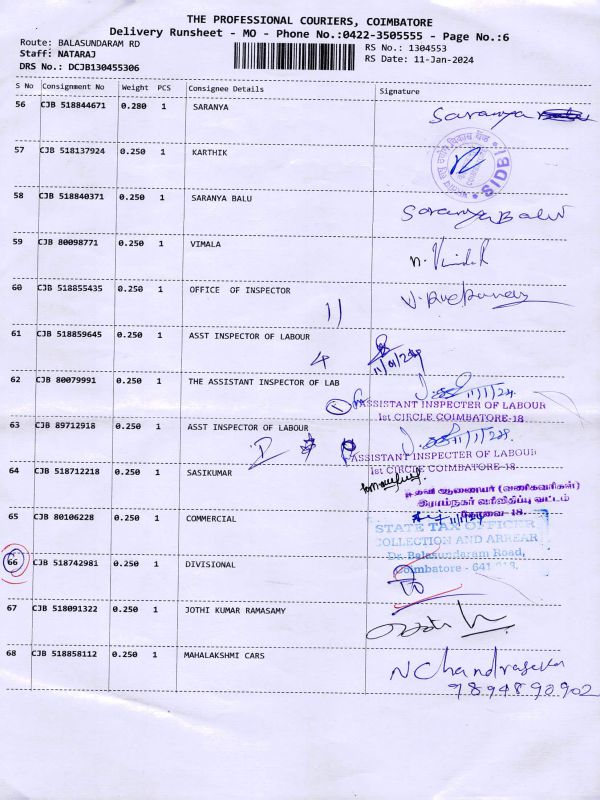 THE PROFESSIONAL COURIERS, COIMBATORE
Delivery Runsheet - MO - Phone No.:0422-3505555 - Page No.:6
Route: BALASUNDARAM RD
RS No.: 1304553
Staff: NATARAJ
RS Date: 11-Jan-2024
DRS No.: DCJB130455306
S No Consignment No Weight PCS Consignee Details Signature
56 CJB 518844671 0.280 1 SARANYA Saranya
57 CJB 518137924 0.250 1 KARTHIK
SIDBI
58 CJB 518840371 0.250 1 SARANYA BALU Saranya Balu
59 CJB 80098771 0.250 1 VIMALA
60 CJB 518855435 0.250 1 OFFICE OF INSPECTOR
11
61 CJB 518859645 0.250 1 ASST INSPECTOR OF LABOUR
4 11/01/24
62 CJB 80079991 0.250 1 THE ASSISTANT INSPECTOR OF LAB 11/1/24
ASSISTANT INSPECTER OF LABOUR
1st CIRCLE COIMBATORE-18.
63 CJB 89712918 0.250 1 ASST INSPECTOR OF LABOUR 11/1/24
ASSISTANT INSPECTER OF LABOUR
1st CIRCLE COIMBATORE-18.
64 CJB 518712218 0.250 1 SASIKUMAR
உதவி ஆணையர் (வணிகவரிகள்)
இராம்நகர் வரிவிதிப்பு வட்டம்
கோவை - 18.
65 CJB 80106228 0.250 1 COMMERCIAL
STATE TAX OFFICER
COLLECTION AND ARREAR
Dr. Balasundaram Road,
Coimbatore - 641 018.
66 CJB 518742981 0.250 1 DIVISIONAL
67 CJB 518091322 0.250 1 JOTHI KUMAR RAMASAMY
68 CJB 518858112 0.250 1 MAHALAKSHMI CARS
N Chandrasekar
9894890902